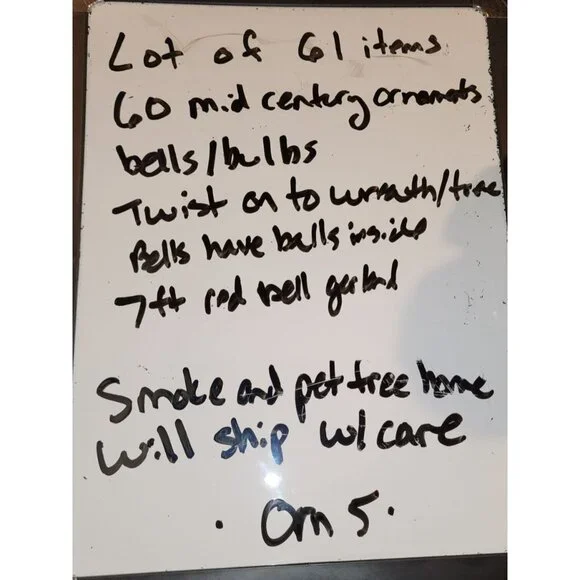 Lot of 61 items
60 mid century ornamats
bells/bulbs
Twist on to wreath/tree
Bells have balls inside
7ft red bell garland
Smoke and pet free home
Will ship w/care
· Orn 5 ·